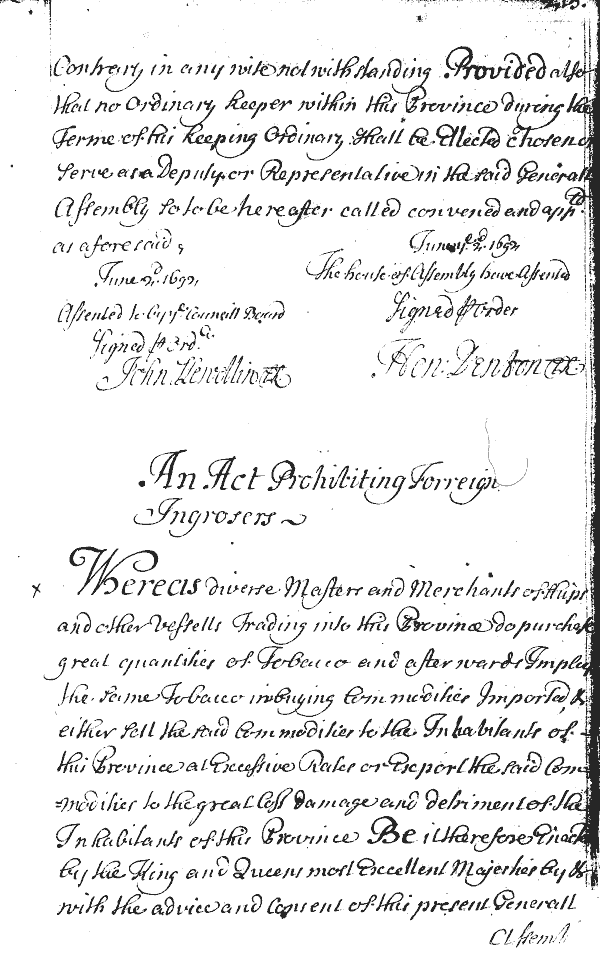 Contrary in any wise notwithstanding Provided also
that no Ordinary keeper within this Province during the
Terme of his keeping Ordinary shall be Elected chosen or
serve as a Deputy or Representative in the said Generall
Assembly so to be hereafter called convened and appted
as aforesaid;
June 2d. 1692
The house of Assembly have Assented
Signed p Order
Hen: Denton Clk
June 2d. 1692
Assented to by ye Councill Board
Signed p Ordr.
John Llewellin Clk
An Act Prohibiting Forreign
Ingrosers
x Whereas diverse Masters and Merchants of Ships
and other Vessells Trading into this Province do purchase
great quantities of Tobacco and afterwards Imploy
the same Tobacco in buying Commodities Imported, &
either sell the said Commodities to the Inhabitants of
this Province at Excessive Rates or Export the said Com
=modities to the great loss damage and detriment of the
Inhabitants of this Province Be it therefore Enacted
by the King and Queens most Excellent Majesties by &
with the advice and Consent of this present Generall
Assemb